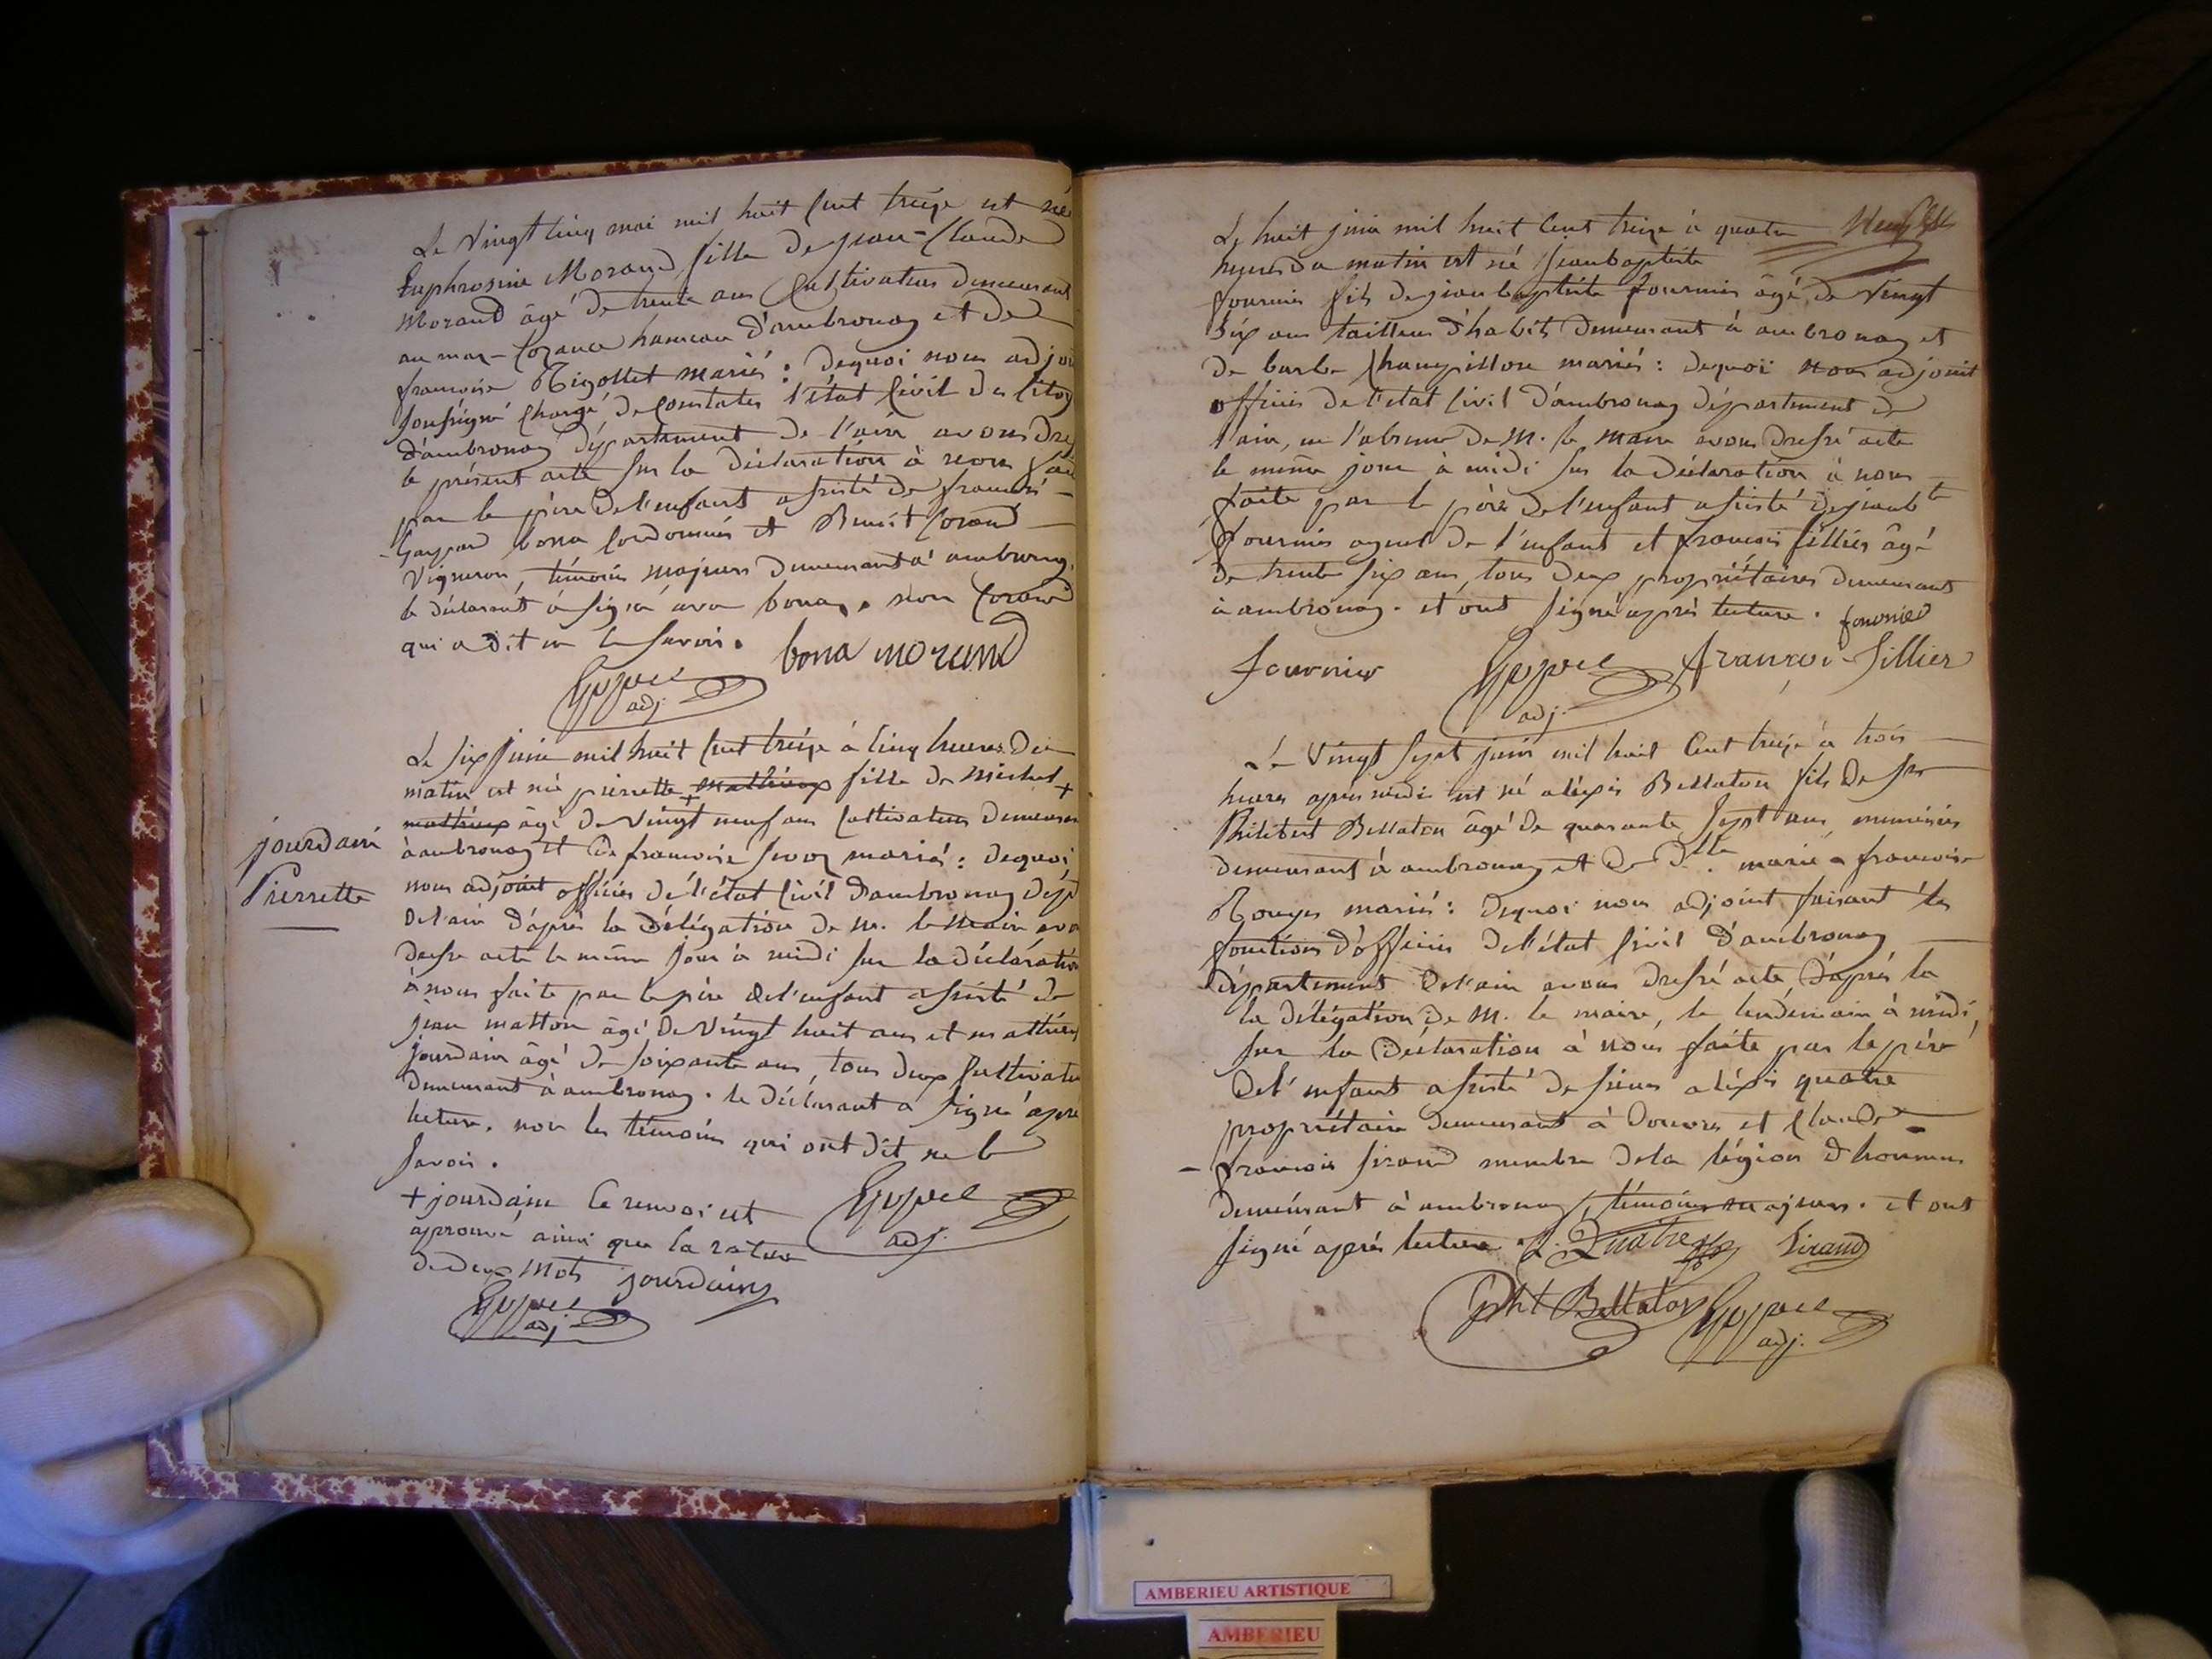 Le vingt cinq mai mil huit cent treize est née
Euphrosine Morand fille de jean-Claude
Morand âgé de trente ans Cultivateur demeurant
au mas-lozance hameau d'ambronay et de
francoise Rigollet mariés : dequoi nous adjoi
soussigné chargé de constater l'état Civil des Citoy
d'ambronay département de l'ain avons dre
le présent acte sur la déclaration à nous fai
par le père de l'enfant assisté de francois -
- Gaspard bona Cordonnier et Benoit Corand
Vigneron, témoins majeurs demeurant à ambronay.
le déclarant à signé avec bona, non Corand
qui a dit ne le savoir. bona morand
adj.
Le six juin mil huit Cent treize à Cinq heures du
matin est née pierrette + mathieux fille de michel +
mathieux âgé de vingt neuf ans Cultivateur demeuran
à ambronay et de francoise mariés : dequoi
jourdain
Pierrette
nous adjoint officier de l'état Civil d'ambronay dép
de l'ain d'après la délégation de m. le maire avo
dressé acte le même jour à midi sur la déclaration
à nous faite par le père de l'enfant assisté de
jean matton âgé de vingt huit ans et mathieu
jourdain âgé de soixante ans, tous deux Cultivate
demeurant à ambronay. le déclarant a signé apre
lecture. non les témoins qui ont dit ne le
savoir.
+ jourdain le renvoi est
approuvé ainsi que la rature
de deux mots jourdain
adj.
adj
Le huit juin mil huit Cent treize à quatre
heures du matin est né jean baptiste
fournier fils de jean baptiste fournier âgé de vingt
six ans tailleur d'habits demeurant à ambronay et
de barbe Champillon mariés : dequoi nous adjoint
officier de l'état Civil d'ambronay département de
l'ain, en l'absence de M. le maire avons dressé acte
le même jour à midi sur la déclaration à nous
faite par le père de l'enfant assisté de jean bte
fournier ayeul de l'enfant et francois fillier âgé
de trente six ans, tous deux propriétaires demeurant
à ambronay. et ont signé après lecture. fournier
fournier francoi fillier
adj.
Le vingt sept juin mil huit Cent treize à trois
heures après midi est né aléxis Bellaton fils de sr
Philibert Bellaton âgé de quarante sept ans
demeurant à ambronay et de Dlle. marie - francoise
Rouyer mariés : dequoi nous adjoint faisant les
fonctions d'officier de l'état Civil d'ambronay
département de l'ain avons dressé acte d'après la
la délégation de M. le maire, le lendemain à midi,
sur la déclaration à nous faite par le père
de l'enfant assisté de sieur aléxis quatre
propriétaire demeurant à Douvres et Claude -
- francois sirand membre de la légion d'honneur
demeurant à ambronay, témoins majeurs. et ont
signé après lecture. Quatre Sirand
Pht Bellaton
adj.
AMBERIEU ARTISTIQUE
AMBERIEU